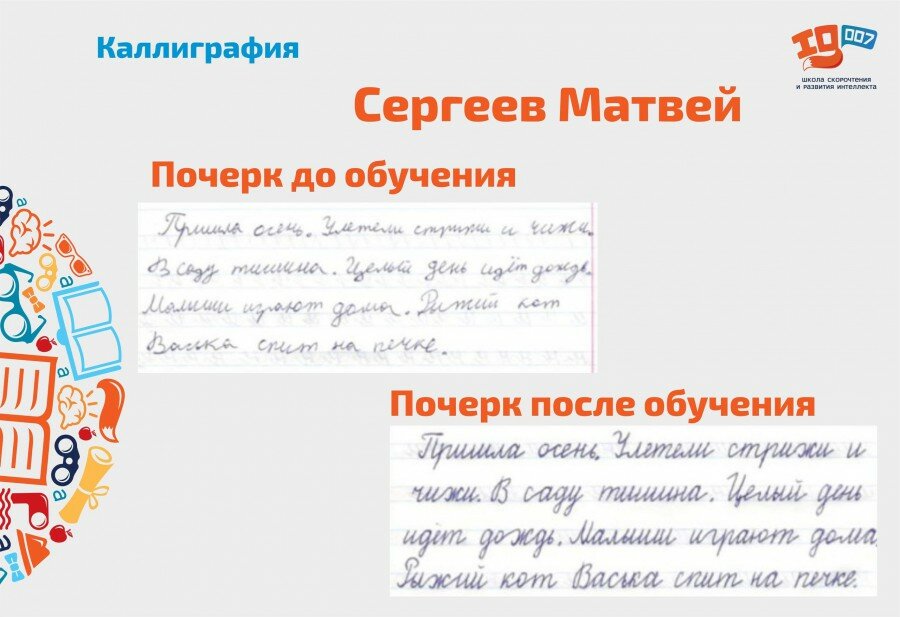 Каллиграфия
IQ 007
ШКОЛА СКОРОЧТЕНИЯ
И РАЗВИТИЯ ИНТЕЛЛЕКТА
Сергеев Матвей
Почерк до обучения
Пришла осень. Улетели стрижи и чижи.
В саду тишина. Целый день идёт дождь.
Малыши играют дома. Рыжий кот
Васька спит на печке.
Почерк после обучения
Пришла осень. Улетели стрижи и
чижи. В саду тишина. Целый день
идёт дождь. Малыши играют дома.
Рыжий кот Васька спит на печке.